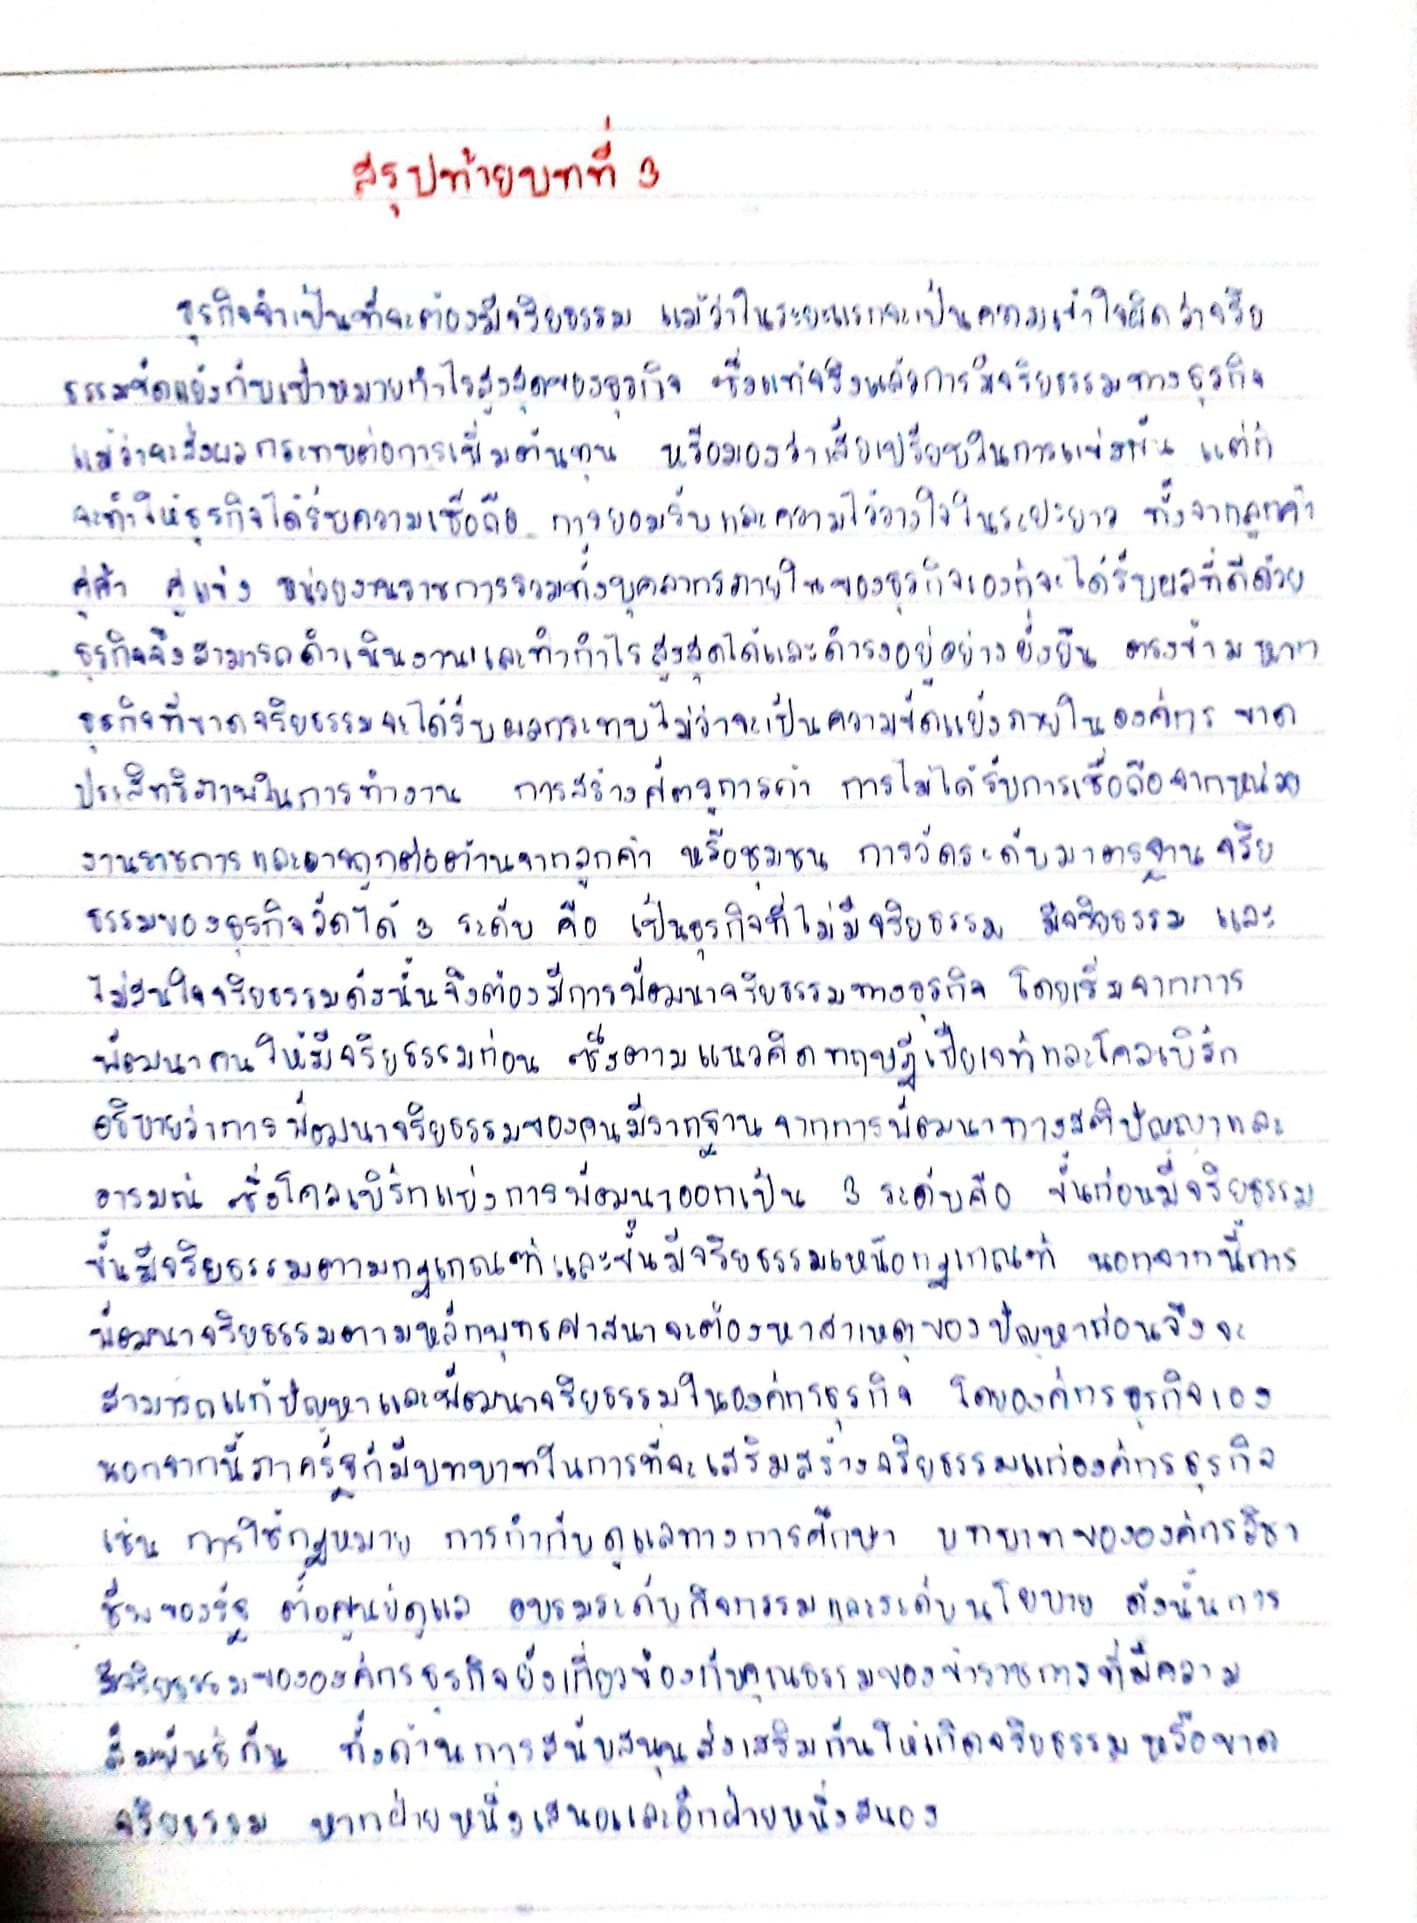 สรุปท้ายบทที่ 3
ธุรกิจจำเป็นที่จะต้องมีจริยธรรม แม้ว่าในระยะแรกจะเป็นความเข้าใจผิดว่าจริย
ธรรมขัดแย้งกับเป้าหมายกำไรสูงสุดของธุรกิจ ซึ่งแท้จริงแล้วการมีจริยธรรมทางธุรกิจ
แม้ว่าจะส่งผลกระทบต่อการเพิ่มต้นทุน หรือมองว่าเสียเปรียบในการแข่งขัน แต่ก็
จะทำให้ธุรกิจได้รับความเชื่อถือ การยอมรับและความไว้วางใจในระยะยาว ทั้งจากลูกค้า
คู่ค้า คู่แข่ง หน่วยงานราชการรวมทั้งบุคลากรภายในของธุรกิจเองก็จะได้รับผลที่ดีด้วย
ธุรกิจจึงสามารถดำเนินงานและทำกำไรสูงสุดได้และดำรงอยู่อย่างยั่งยืน ตรงข้ามหาก
ธุรกิจที่ขาดจริยธรรมจะได้รับผลกระทบไม่ว่าจะเป็นความขัดแย้งภายในองค์กร ขาด
ประสิทธิภาพในการทำงาน การสร้างศัตรูการค้า การไม่ได้รับการเชื่อถือจากหน่วย
งานราชการและอาจถูกต่อต้านจากลูกค้า หรือชุมชน การวัดระดับมาตรฐานจริย
ธรรมของธุรกิจวัดได้ 3 ระดับ คือ เป็นธุรกิจที่ไม่มีจริยธรรม มีจริยธรรม และ
ไม่สนใจจริยธรรมดังนั้นจึงต้องมีการพัฒนาจริยธรรมทางธุรกิจ โดยเริ่มจากการ
พัฒนาคนให้มีจริยธรรมก่อน ซึ่งตามแนวคิดทฤษฎีเปียเจท์และโคลเบิร์ก
อธิบายว่าการพัฒนาจริยธรรมของคนมีรากฐานจากการพัฒนาทางสติปัญญาและ
อารมณ์ ซึ่งโคลเบิร์กแบ่งการพัฒนาออกเป็น 3 ระดับคือ ขั้นก่อนมีจริยธรรม
ขั้นมีจริยธรรมตามกฎเกณฑ์และขั้นมีจริยธรรมเหนือกฎเกณฑ์ นอกจากนี้การ
พัฒนาจริยธรรมตามหลักพุทธศาสนาจะต้องหาสาเหตุของปัญหาก่อนจึงจะ
สามารถแก้ปัญหาและพัฒนาจริยธรรมในองค์กรธุรกิจ โดยองค์กรธุรกิจเอง
นอกจากนี้ภาครัฐก็มีบทบาทในการที่จะเสริมสร้างจริยธรรมแก่องค์กรธุรกิจ
เช่น การใช้กฎหมาย การกำกับดูแลทางการศึกษา บทบาทขององค์กรวิชา
ชีพของรัฐ ตั้งศูนย์ดูแล อบรมระดับกิจกรรมและระดับนโยบาย ดังนั้นการ
มีจริยธรรมขององค์กรธุรกิจยังเกี่ยวข้องกับคุณธรรมของข้าราชการที่มีความ
สัมพันธ์กัน ทั้งด้านการสนับสนุนส่งเสริมกันให้เกิดจริยธรรมหรือขาด
จริยธรรม หากฝ่ายหนึ่งเสนอและอีกฝ่ายหนึ่งสนอง